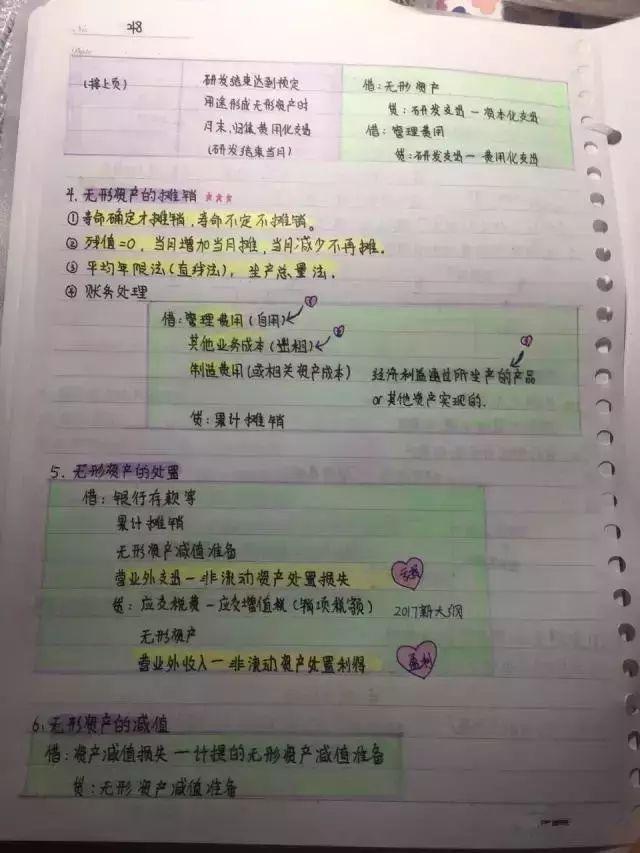 No. 48
Date
(接上页)
研发结束达到预定
用途形成无形资产时
月末,归集费用化支出
(研发结束当月)
借:无形资产
贷:研发支出—资本化支出
借:管理费用
贷:研发支出—费用化支出
4. 无形资产的摊销 ★★★
①寿命确定才摊销,寿命不定不摊销。
②残值=0,当月增加当月摊,当月减少不再摊。
③平均年限法(直线法),生产总量法.
④账务处理
借:管理费用(自用) 1
其他业务成本(出租) 2
制造费用(或相关资产成本) 经济利益通过所生产的产品
or其他资产实现的. 3
贷:累计摊销
5. 无形资产的处置
借:银行存款等
累计摊销
无形资产减值准备
营业外支出—非流动资产处置损失
贷:应交税费—应交增值税(销项税额) 2017新大纲
无形资产
营业外收入—非流动资产处置利得 盈利
6. 无形资产的减值
借:资产减值损失—计提的无形资产减值准备
贷:无形资产减值准备